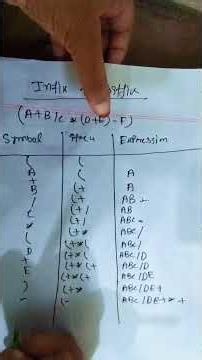 Infix
(A+B/C*(D+E)-F)
Symbol Stack Expression
( (
A ( A
+ (+ A
B (+ AB
/ (+/ AB
C (+/ ABC
* (+* ABC/
( (+*( ABC/
D (+*( ABC/D
+ (+*(+ ABC/D
E (+*(+ ABC/DE
) (+* ABC/DE+
- (- ABC/DE+*+